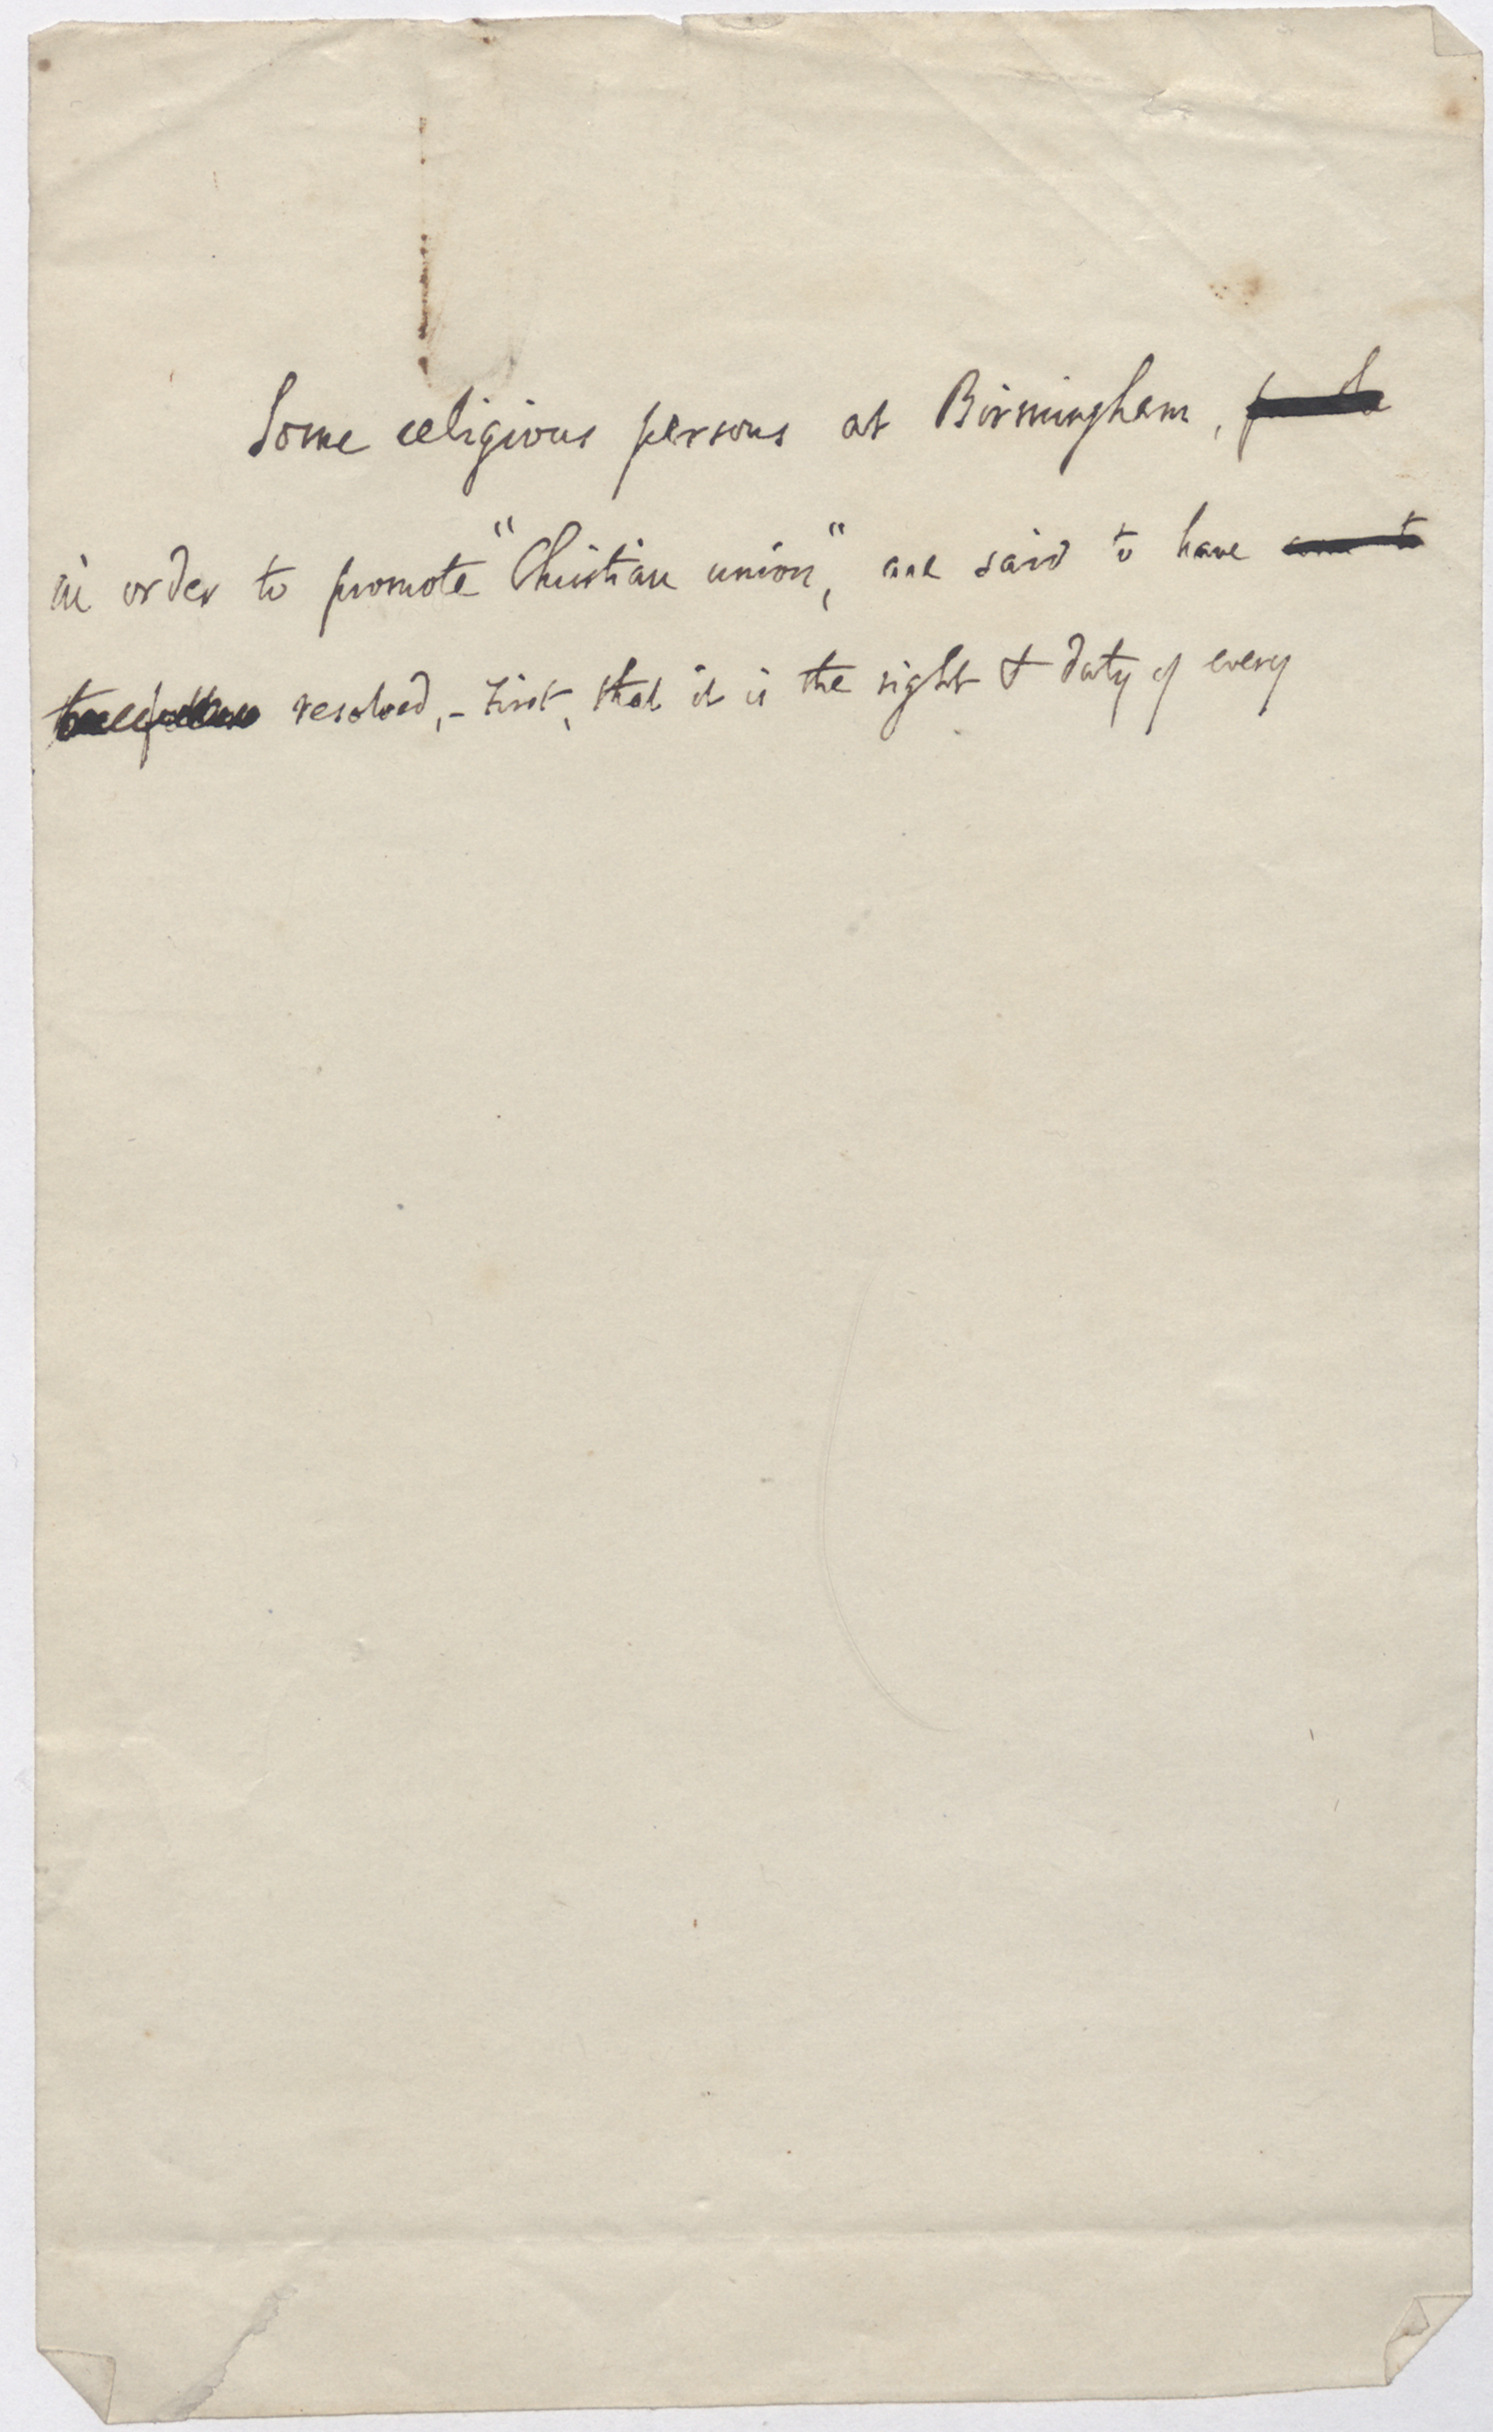 Some religious persons at Birmingham,
in order to promote "Christian union", are said to have come to
resolved, - First, that it is the right & duty of every